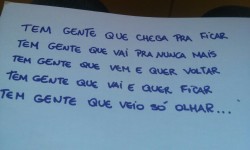 TEM GENTE QUE CHEGA PRA FICAR
TEM GENTE QUE VAI PRA NUNCA MAIS
TEM GENTE QUE VEM E QUER VOLTAR
TEM GENTE QUE VAI E QUER FICAR
TEM GENTE QUE VEIO SÓ OLHAR...